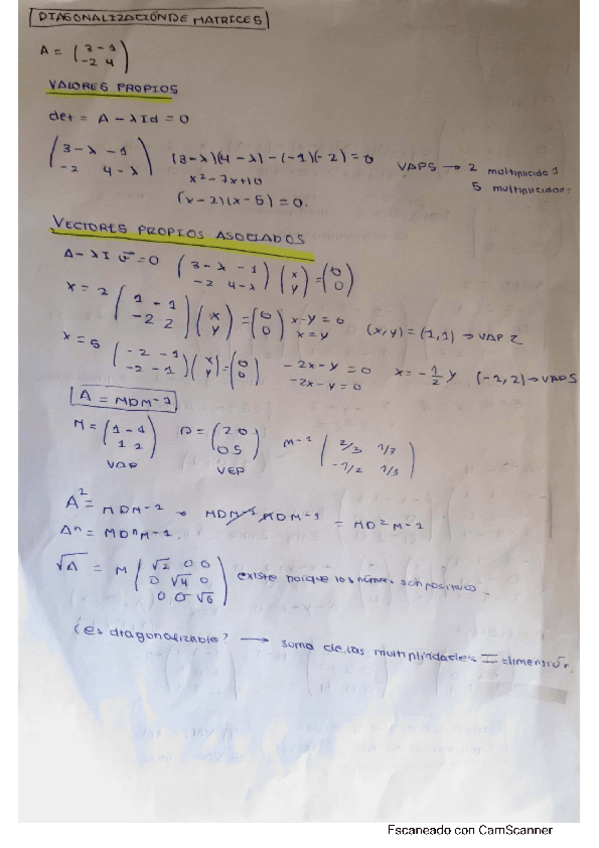 DIAGONALIZACIÓN DE MATRICES
A = (3 -1
-2 4)
VALORES PROPIOS
det = A - λId = 0
(3-λ -1
-2 4-λ) (3-λ)(4-λ)-(-1)(-2)=0 VAPS → 2 multiplicidad 1
x²-7x+10 5 multiplicidad
(x-2)(x-5)=0.
VECTORES PROPIOS ASOCIADOS
A-λI v̄=0 (3-λ -1
-2 4-λ) (x
y) = (0
0)
x=2 (1 -1
-2 2) (x
y) = (0
0) x-y=0
x=y (x,y)=(1,1) → VAP 2
x=5 (-2 -1
-2 -1) (x
y) = (0
0) -2x-y=0
-2x-y=0 x=-1/2 y (-1,2) → VAP 5
A = MDM-1
M = (1 -1
1 2) D = (2 0
0 5) M-1 (2/3 1/3
-1/2 1/3)
VAP VEP
A² = MDM-1 MDM-1 MDM-1 = MD²M-1
Aⁿ = MDⁿM-1.
√A = M (√2 0 0
0 √4 0
0 0 √6) existe porque los números son positivos.
¿es diagonalizable? → suma de las multiplicidades = dimensión.
Escaneado con CamScanner